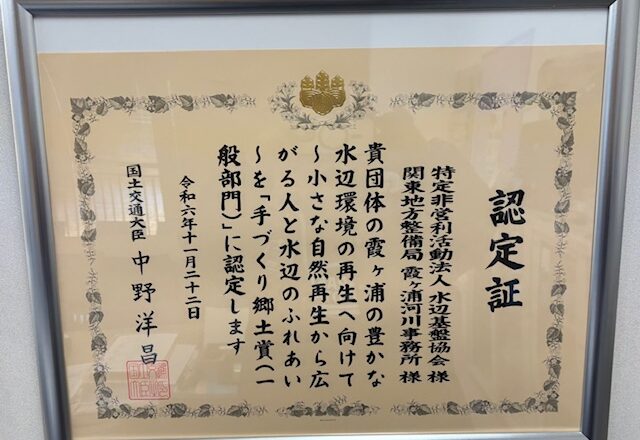 認定証
特定非営利活動法人 水辺基盤協会 様
関東地方整備局 霞ヶ浦河川事務所 様
貴団体の霞ヶ浦の豊かな
水辺環境の再生へ向けて
～小さな自然再生から広
がる人と水辺のふれあい
～を「手づくり郷土賞(一
般部門)」に認定します
令和六年十一月二十二日
国土交通大臣 中野洋昌